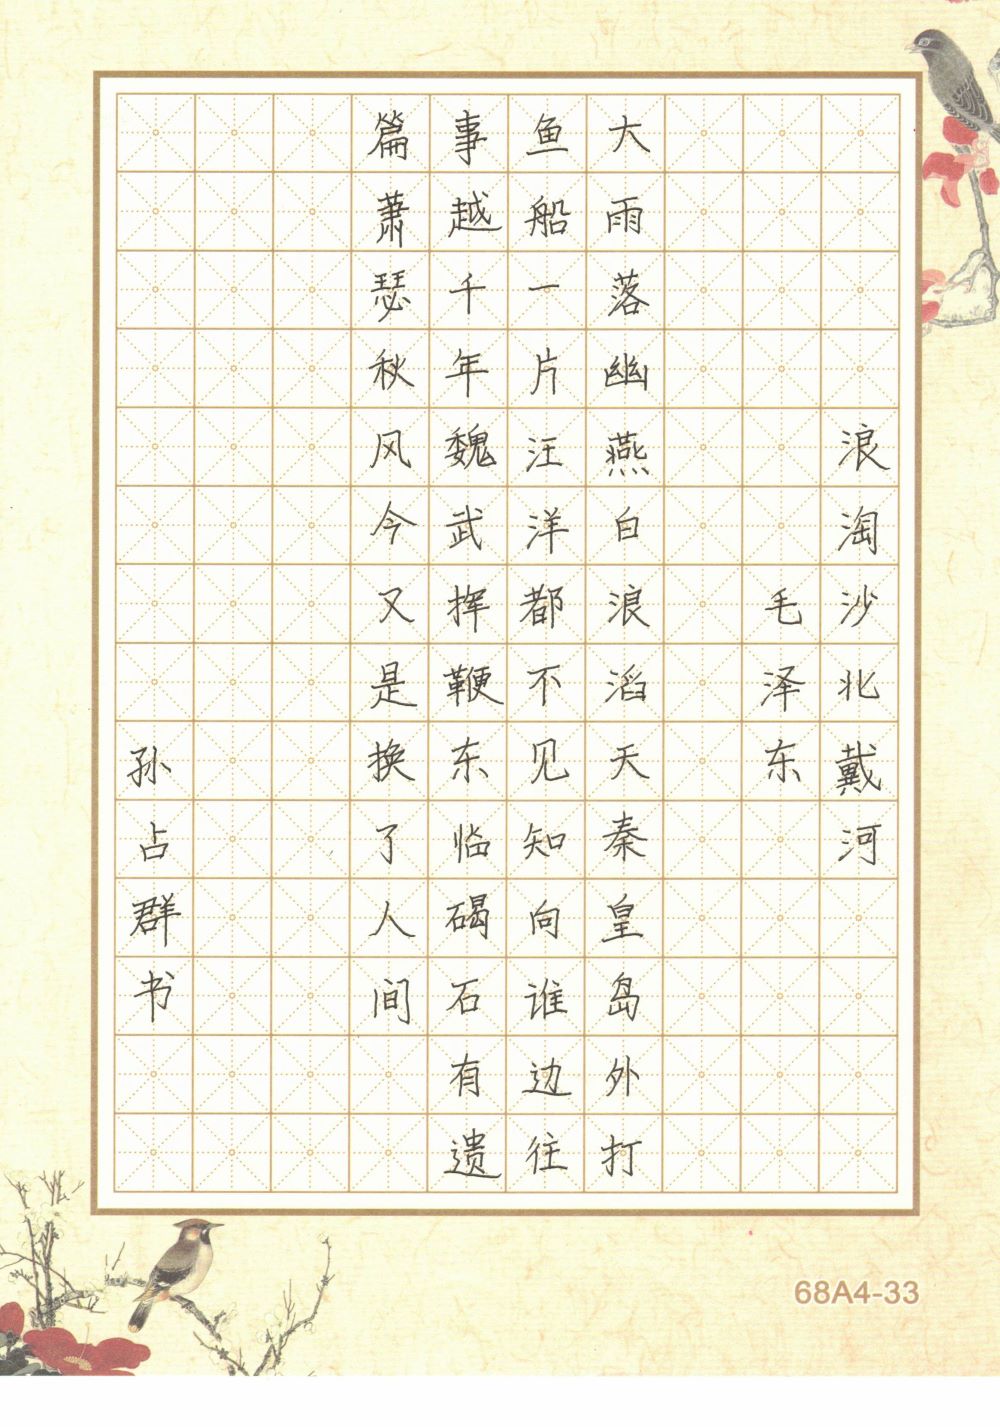 浪淘沙北戴河
毛泽东
大雨落幽燕白浪滔天秦皇岛外打
鱼船一片汪洋都不见知向谁边往
事越千年魏武挥鞭东临碣石有遗
篇萧瑟秋风今又是换了人间
孙占群书
68A4-33